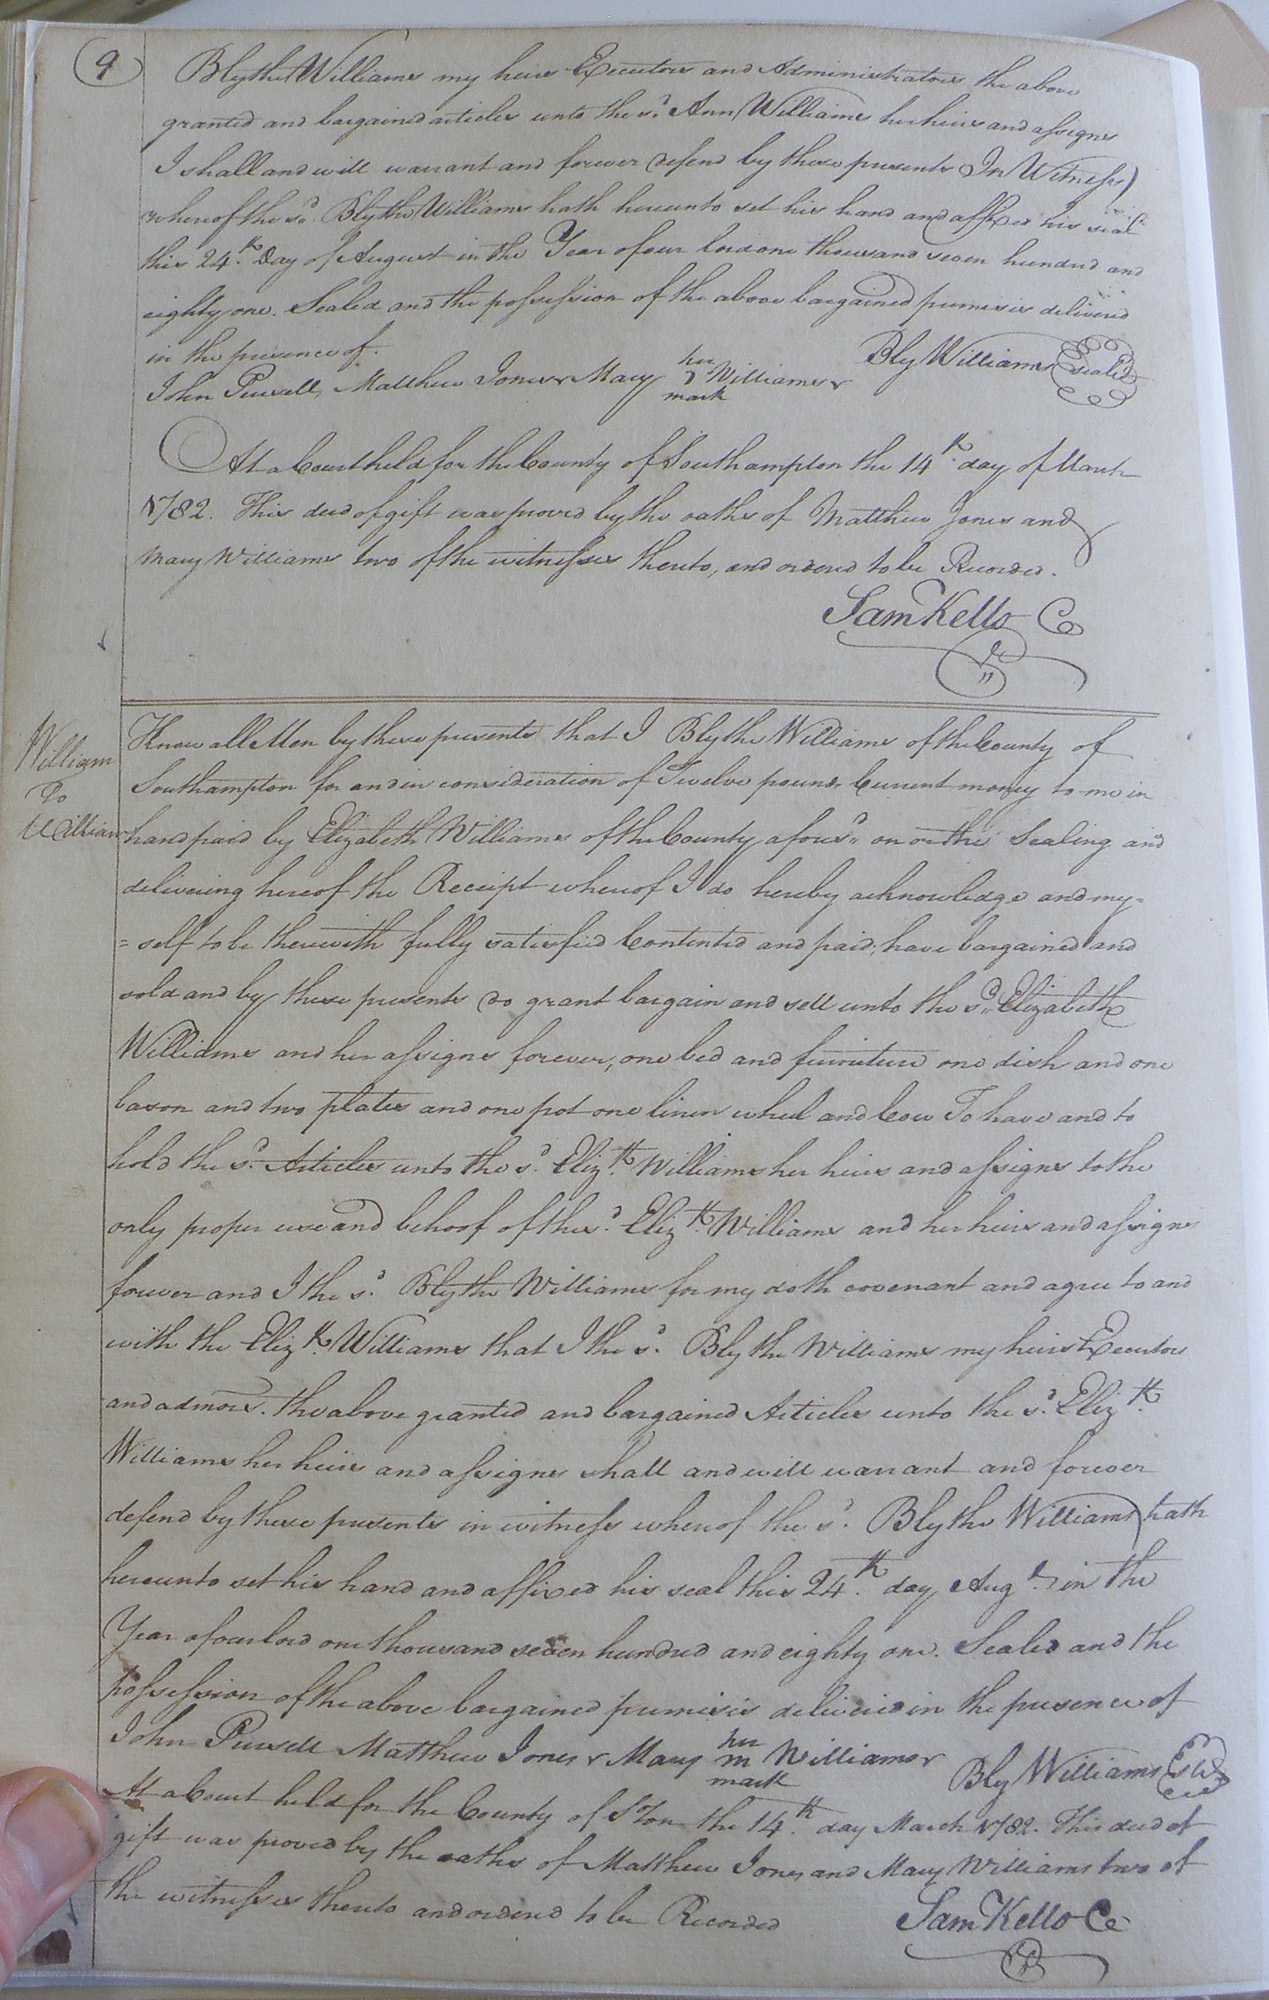 9
Blythe Williams my heirs Executors and Administrators the above
granted and bargained articles unto the sd. Ann Williams her heirs and assigns
I shall and will warrant and forever defend by these presents In Witness
whereof the sd. Blythe Williams hath hereunto set his hand and affixed his seal
this 24th. Day of August in the Year of our lord one thousand seven hundred and
eighty one. Sealed and the possession of the above bargained premises delivered
in the presence of.
Bly Williams Seald
her
John Pursell, Matthew Jones & Mary Williams
mark
At a Court held for the County of Southampton the 14th. day of March
1782. This deed of gift was proved by the oaths of Matthew Jones and
Mary Williams two of the witnesses thereto, and ordered to be Recorded.
Sam Kello Ce
William
To
William
Know all Men by these presents that I Blythe Williams of the County of
Southampton for and in consideration of Twelve pounds Current money to me in
hand paid by Elizabeth Williams of the County aforesd. on or the Sealing and
delivering hereof the Receipt whereof I do hereby acknowledge and my=
=self to be therewith fully satisfied Contented and paid, have bargained and
sold and by these presents do grant bargain and sell unto the sd. Elizabeth
Williams and her assigns forever, one bed and furniture one dish and one
bason and two plates and one pot one linen wheel and Cow To have and to
hold the sd. Articles unto the sd. Elizth. Williams her heirs and assigns to the
only proper use and behoof of the sd. Elizth. Williams and her heirs and assigns
forever and I the sd. Blythe Williams for my doth covenant and agree to and
with the Elizth. Williams that I the sd. Blythe Williams my heirs Executors
and admors. the above granted and bargained Articles unto the sd. Elizth.
Williams her heirs and assigns shall and will warrant and forever
defend by these presents in witness whereof the sd. Blythe Williams hath
hereunto set his hand and affixed his seal this 24th. day Augt. in the
Year of our lord one thousand seven hundred and eighty one. Sealed and the
possession of the above bargained premises delivered in the presence of
her
John Pursell Matthew Jones & Mary m Williams
mark
Bly Williams
At a Court held for the County of S'ton the 14th. day March 1782. This deed of
gift was proved by the oaths of Matthew Jones and Mary Williams two of
the witnesses thereto and ordered to be Recorded
Sam Kello Ce